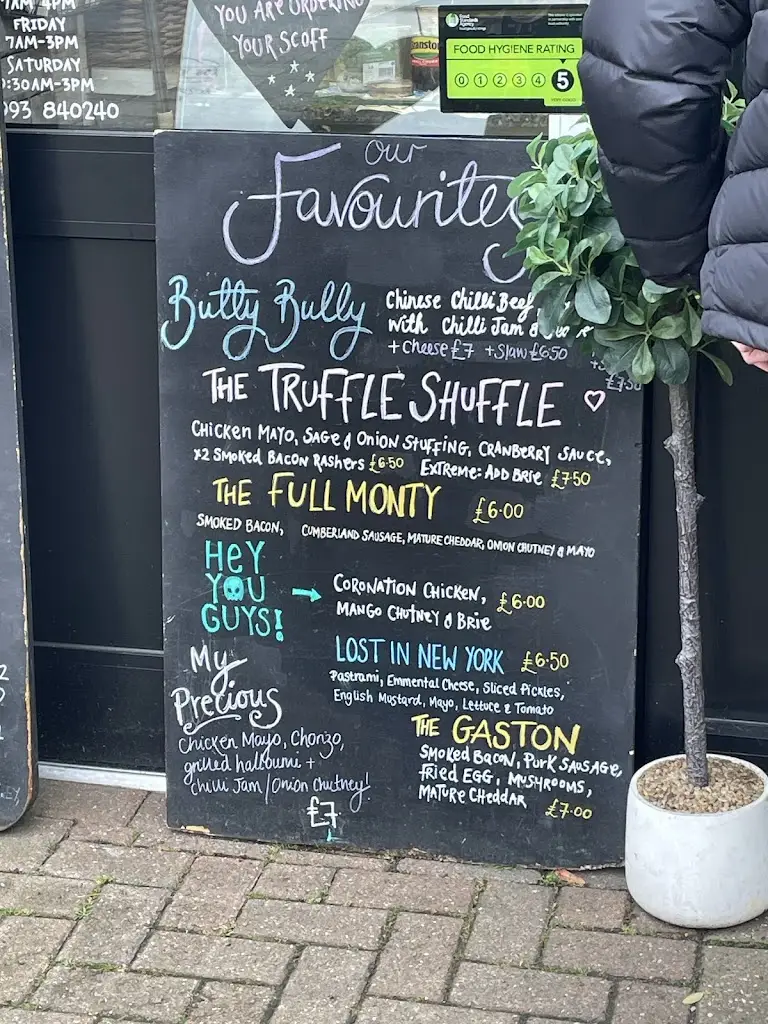 7AM-4PM
FRIDAY
7AM-3PM
SATURDAY
:30AM-3PM
093 840240
YOU ARE ORDERING
YOUR SCOFF
Branston
FOOD HYGIENE RATING
0 1 2 3 4 5
VERY GOOD
our
Favourites
Butty Bully
Chinese Chilli Beef
with Chilli Jam &
+cheese £7 +Slaw £6.50
£7.50
THE TRUFFLE SHUFFLE
CHICKEN MAYO, SAGE & ONION STUFFING, CRANBERRY SAUCE,
x2 SMOKED BACON RASHERS £6.50 EXTREME: ADD BRIE £7.50
THE FULL MONTY £6.00
SMOKED BACON, CUMBERLAND SAUSAGE, MATURE CHEDDAR, ONION CHUTNEY & MAYO
HEY
YOU
GUYS!
CORONATION CHICKEN,
MANGO CHUTNEY & BRIE £6.00
LOST IN NEW YORK £6.50
Pastrami, Emmental Cheese, Sliced Pickles,
English Mustard, Mayo, Lettuce & Tomato
My
Precious
Chicken Mayo, Chorizo,
grilled halloumi +
Chilli Jam/Onion Chutney!
£7
THE GASTON
SMOKED BACON, PORK SAUSAGE,
FRIED EGG, MUSHROOMS,
MATURE CHEDDAR £7.00